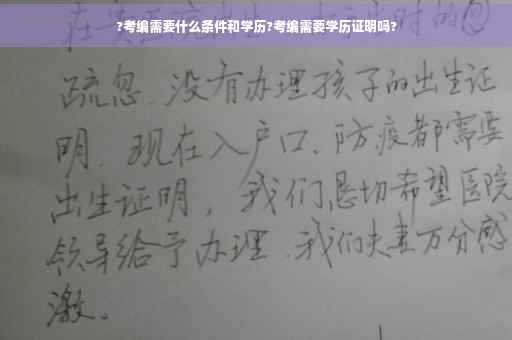 ?考编需要什么条件和学历?考编需要学历证明吗?
疏忽、没有办理孩子的出生证
明、现在入户口、防疫都需要
出生证明，我们恳切希望医院
领导给予办理、我们夫妻万分感
激。